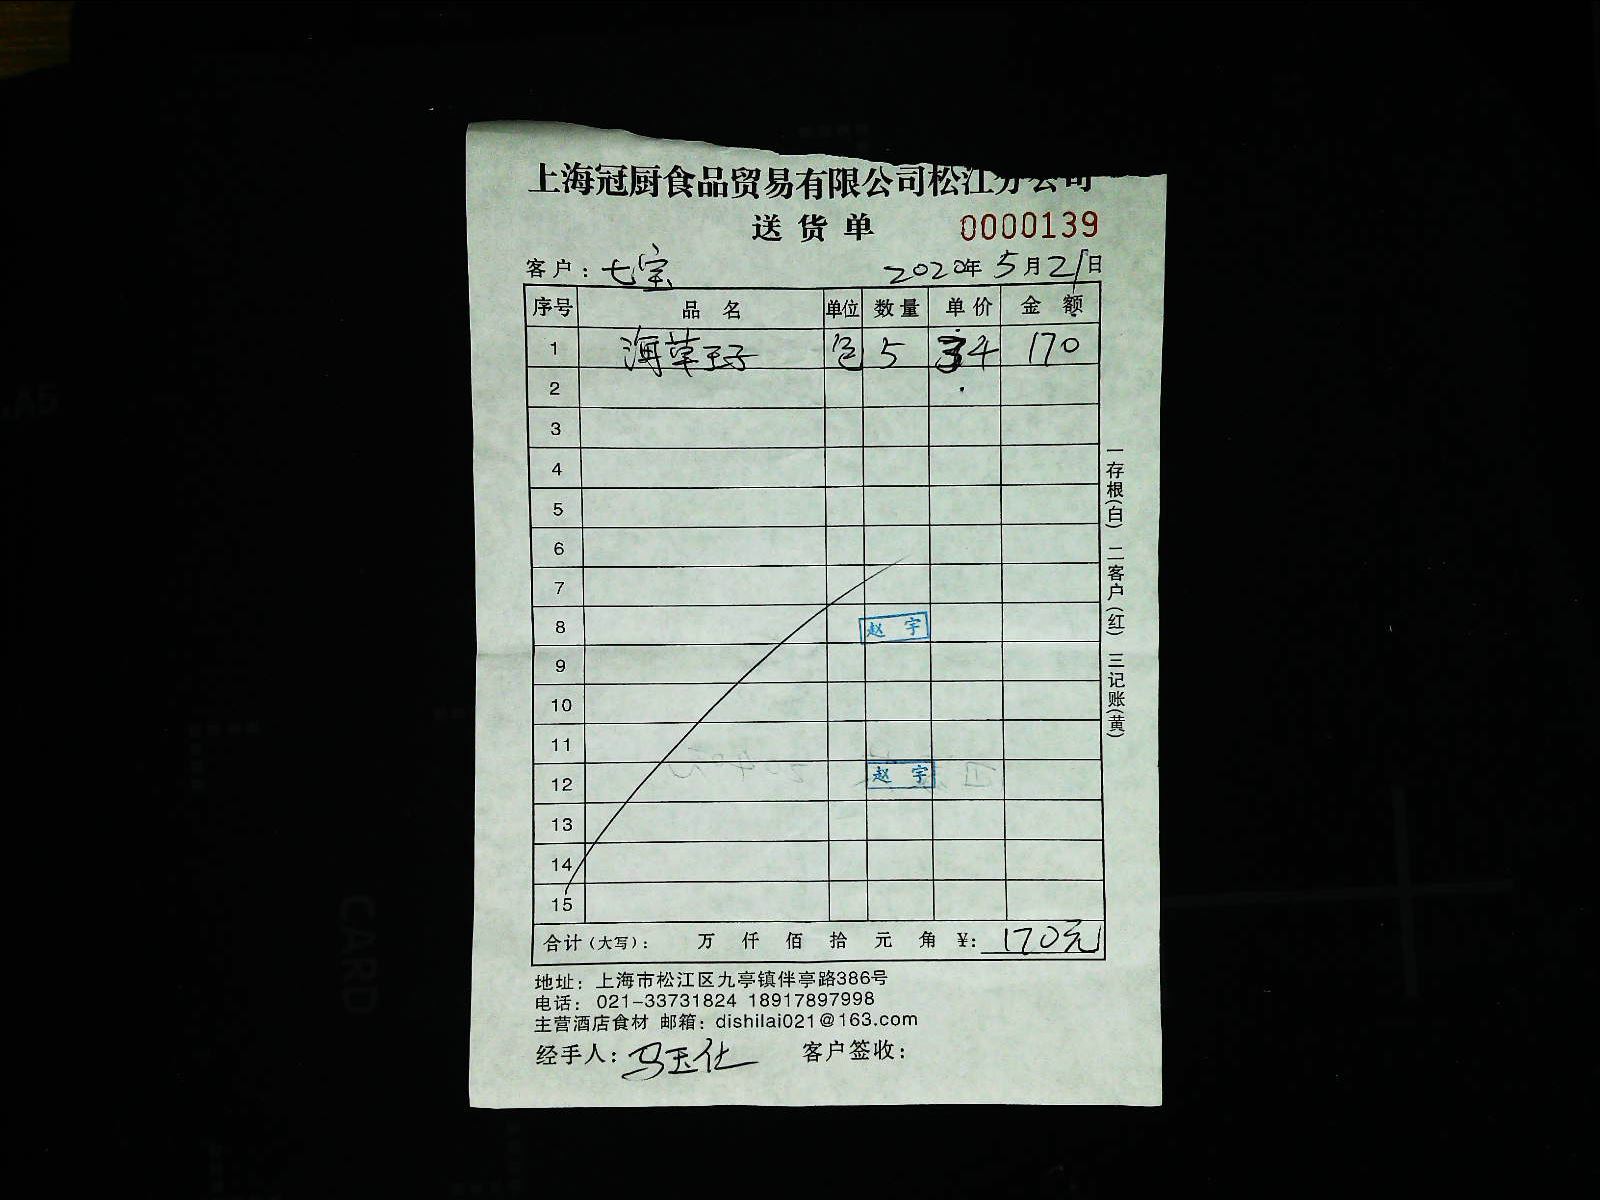 上海冠厨食品贸易有限公司松江分公司
送货单 0000139
客户：七宝 2020年5月21日
序号 品名 单位 数量 单价 金额
1 海草王子 包 5 34 170
2
3
4
5
6
7
8 赵宇
9
10
11
12 赵宇
13
14
15
合计（大写）： 万 仟 佰 拾 元 角 ¥：170元
地址：上海市松江区九亭镇伴亭路386号
电话：021-33731824 18917897998
主营酒店食材 邮箱：dishilai021@163.com
经手人：马玉化 客户签收：
一存根(白) 二客户(红) 三记账(黄)
CARD